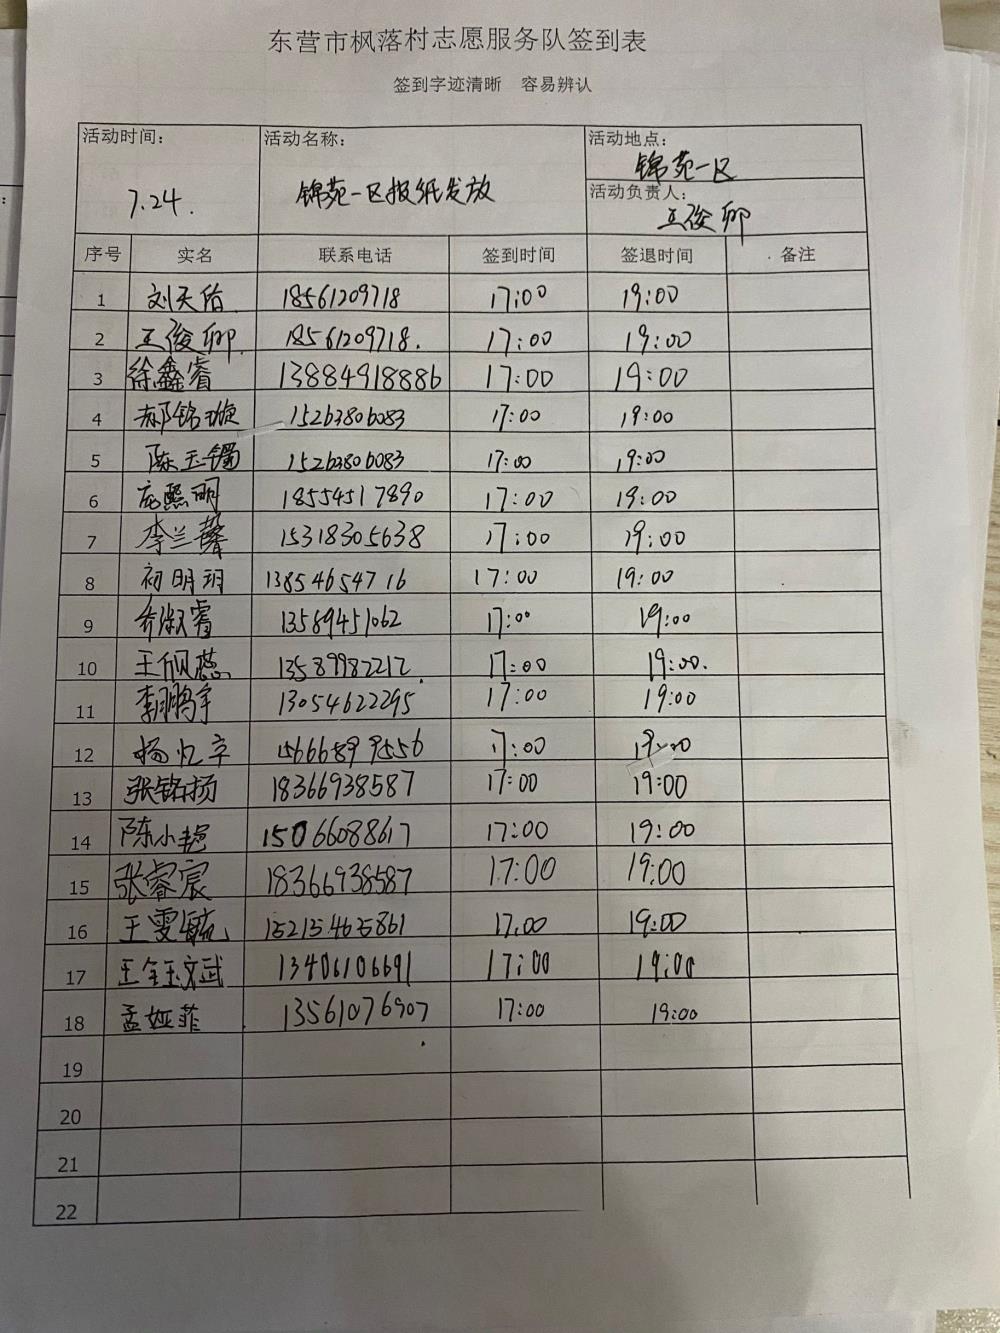 东营市枫落村志愿服务队签到表
签到字迹清晰 容易辨认
活动时间: 活动名称: 活动地点:
锦苑一区
7.24. 锦苑一区报纸发放
活动负责人:
王俊卿
序号 实名 联系电话 签到时间 签退时间 备注
1 刘天佑 18561209718 17:00 19:00
2 王俊卿 18561209718. 17:00 19:00
3 徐鑫睿 13884918886 17:00 19:00
4 郝锦璇 15263806083 17:00 19:00
5 陈玉镯 15263806083 17:00 19:00
6 庞熙明 18554517890 17:00 19:00
7 李兰馨 15318305638 17:00 19:00
8 初明玥 13854654716 17:00 19:00
9 乔淑睿 13589451062 17:00 19:00
10 王佩蕊 13589982212. 17:00 19:00.
11 李鹏宇 13054622295 17:00 19:00
12 杨忆辛 15666899556 17:00 19:00
13 张铭扬 18366938587 17:00 19:00
14 陈小艳 15066088617 17:00 19:00
15 张睿宸 18366938587 17:00 19:00
16 王雯毓 15215465861 17:00 19:00
17 王钰斌 13406106691 17:00 19:00
18 孟娅菲 13561076907 17:00 19:00
19
20
21
22